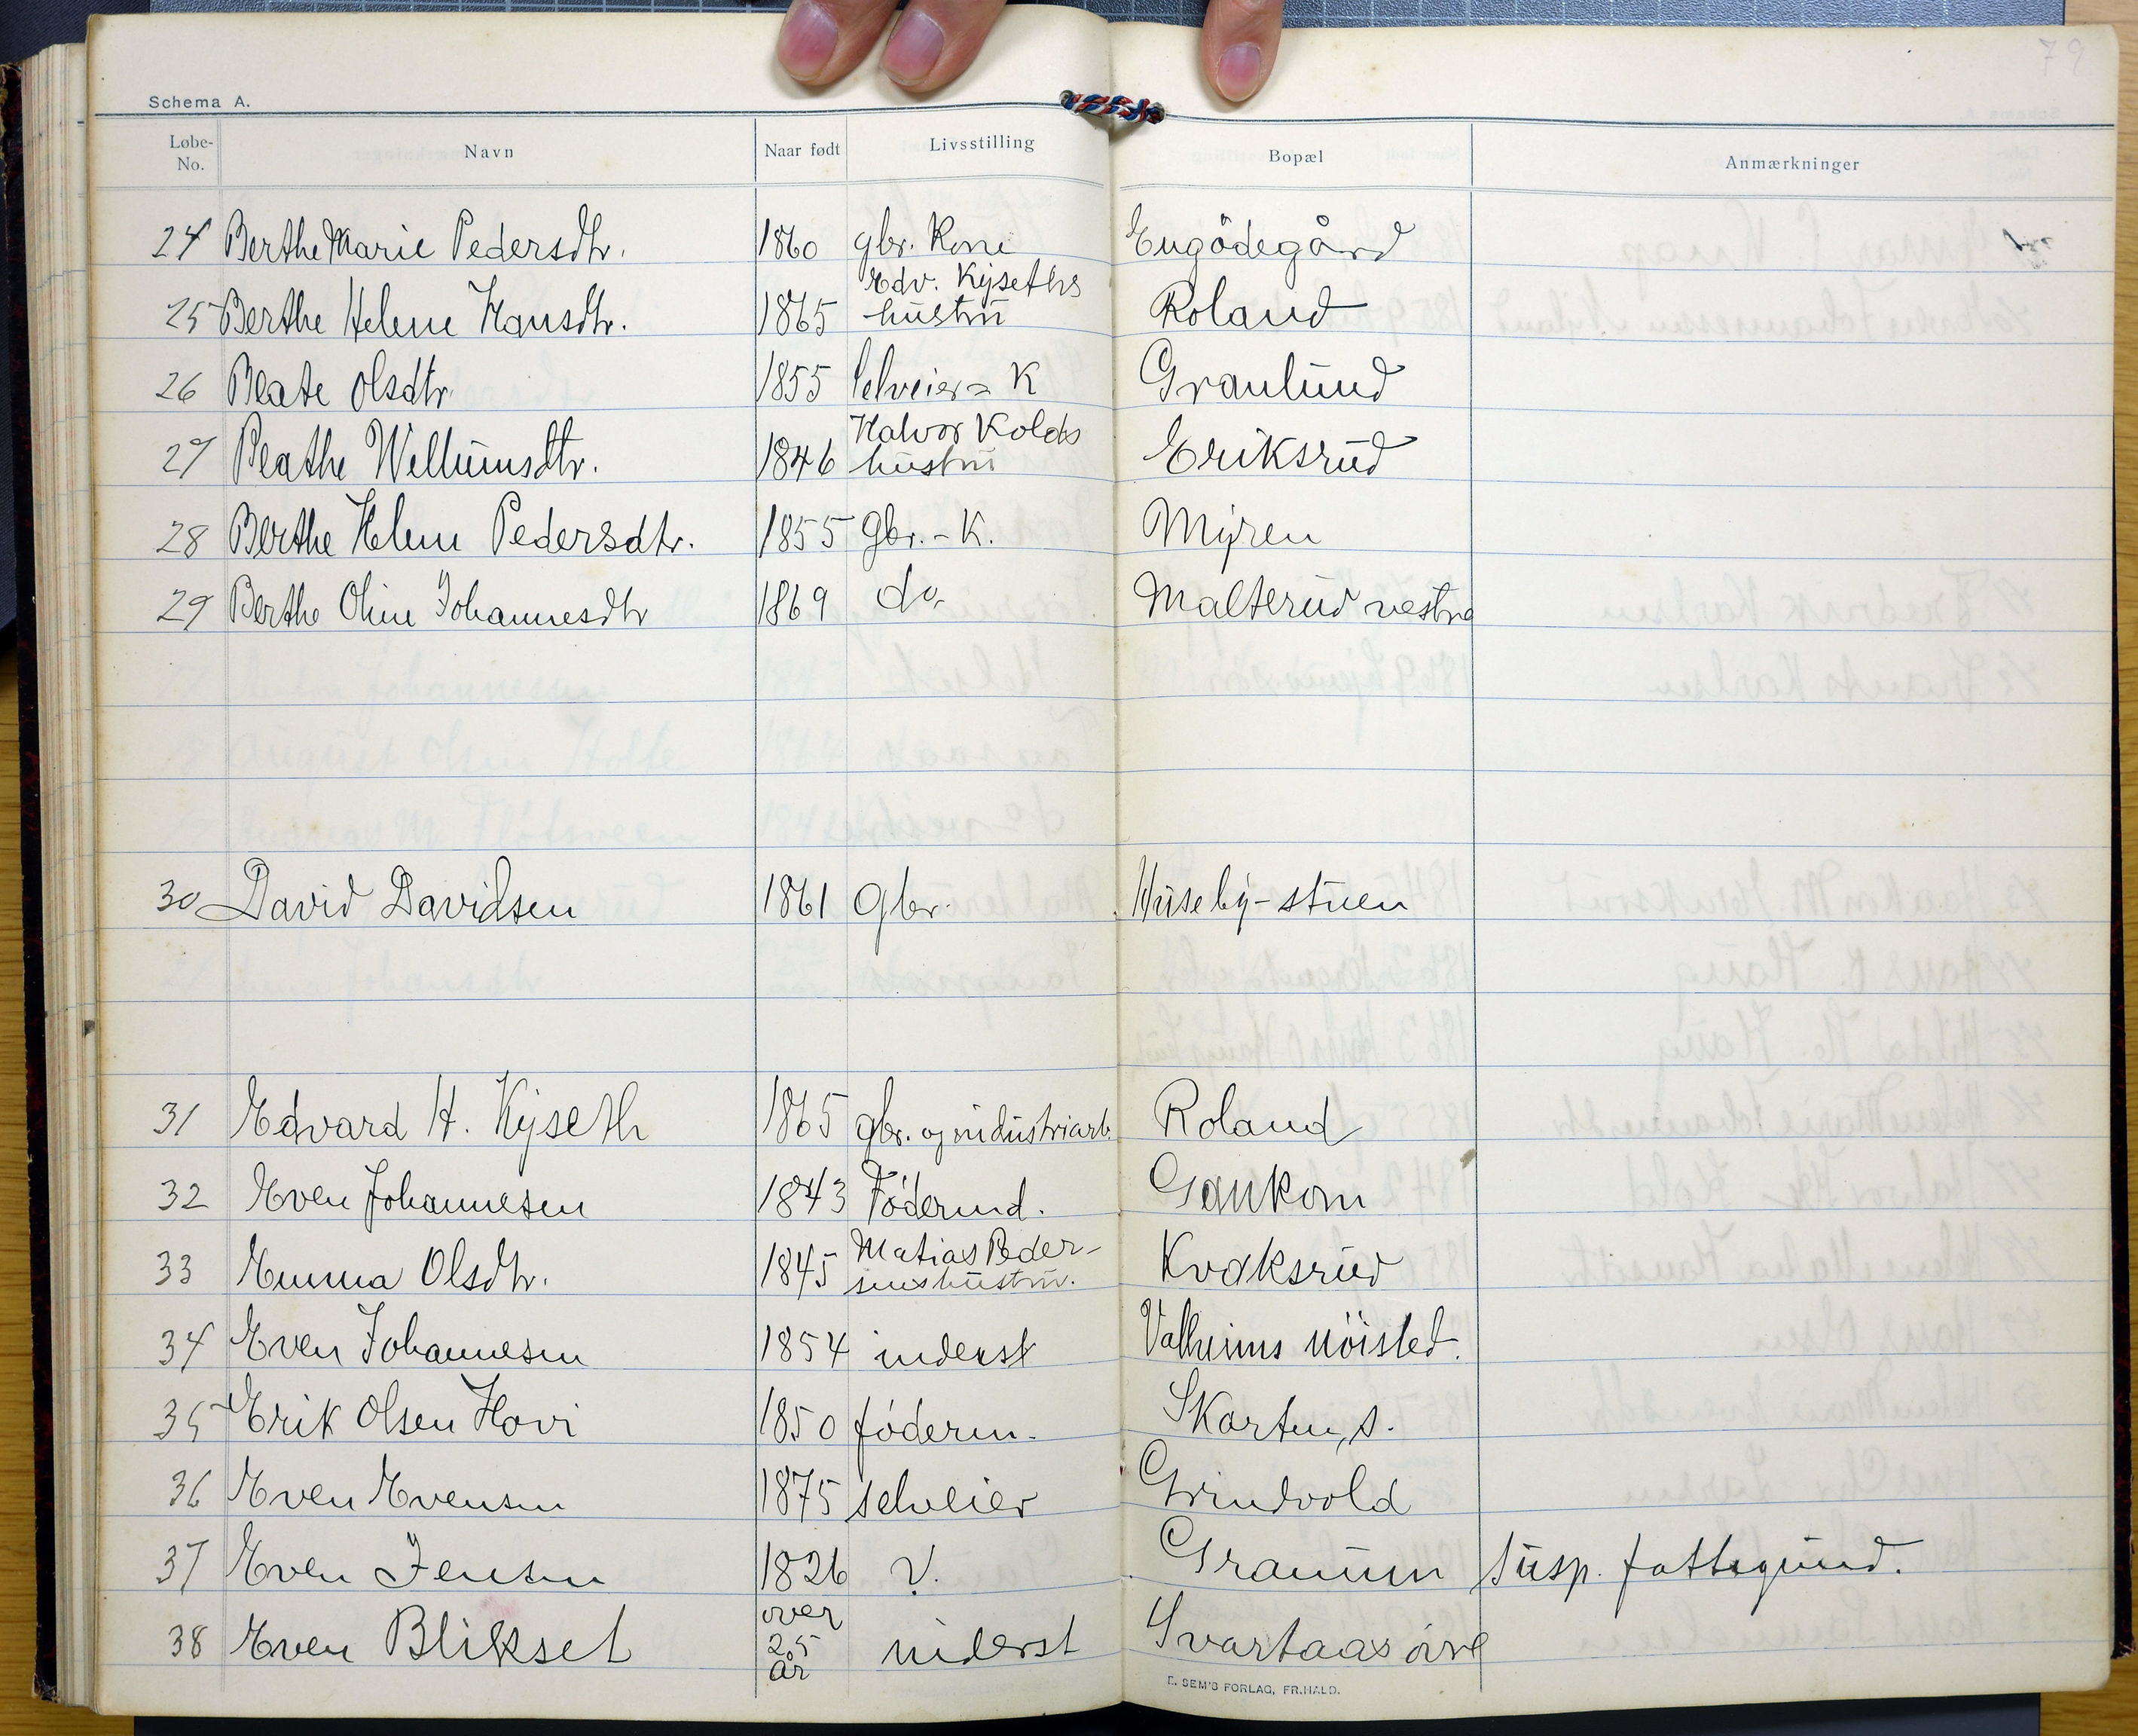 79
Schema A.
Løbe-No. Navn Naar født Livsstilling Bopæl Anmærkninger
24 Berthe Marie Pedersdtr. 1860 gbr. Kone Engödegård
25 Berthe Helene Hansdtr. 1865 Edv. Kÿseths hustru Roland
26 Beate Olsdtr. 1855 selveier = K Granlund
27 Beathe Willumsdtr. 1846 Halvor Kolds hustru Eriksrud
28 Berthe Helene Pedersdtr. 1855 Gbr. - K. Mÿren
29 Berthe Oline Johannesdtr 1869 do. Malterud vestre
30 David Davidsen 1861 Gbr. Husebÿ-stuen
31 Edvard H. Kÿseth 1865 gbr. og industriarb. Roland
32 Even Johannesen 1843 Föderaad. Gaukom
33 Emma Olsdtr. 1845 Matias Peder-
sens hustru. Kvaksrud
34 Even Johannesen 1854 inderst Valheims nöisted.
35 Erik Olsen Hovi 1850 föderm. Skarten, s.
36 Even Evensen 1875 selveier Grindvold
37 Even Jensen 1826 V. Granum Susp. fattiggrund.
38 Even Blikset over
25
år inderst Svartaas övre
E. SEM'S FORLAG, FR.HALD.